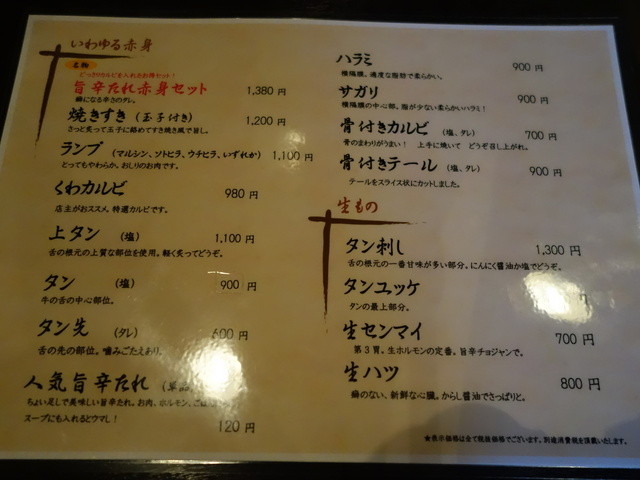 いわゆる赤身
名物
旨辛たれ赤身セット 1,380 円
癖になる辛さのタレ。
焼きすき (玉子付き) 1,200 円
さっと炙って玉子に絡めてすき焼き風で召し。
ランプ (マルシン、ソトヒラ、ウチヒラ、いずれか) 1,100 円
とってもやわらか。おしりのお肉です。
くわカルビ 980 円
店主がおススメ。特選カルビです。
上タン (塩) 1,100 円
舌の根元の上質な部位を使用。軽く炙ってどうぞ。
タン (塩) 900 円
牛の舌の中心部位。
タン先 (タレ) 600 円
舌の先の部位。噛みごたえあり。
人気旨辛たれ
ちょい足しで美味しい旨辛たれ。お肉、ホルモン、
スープにも入れるとウマし!
120 円
ハラミ 900 円
横隔膜。適度な脂肪で柔らかい。
サガリ 900 円
横隔膜の中心部。脂が少ない柔らかいハラミ!
骨付きカルビ (塩、タレ) 700 円
骨のまわりがうまい! 上手に焼いて どうぞ召し上がれ。
骨付きテール (塩、タレ) 900 円
テールをスライス状にカットしました。
生もの
タン刺し 1,300 円
舌の根元の一番甘味が多い部分。にんにく醤油か塩でどうぞ。
タンユッケ 円
タンの最上部分。
生センマイ 700 円
第3胃。生ホルモンの定番。旨辛チョジャンで。
生ハツ 800 円
癖のない、新鮮な心臓。からし醤油でさっぱりと。
★表示価格は全て税抜価格でございます。別途消費税を頂戴いたします。